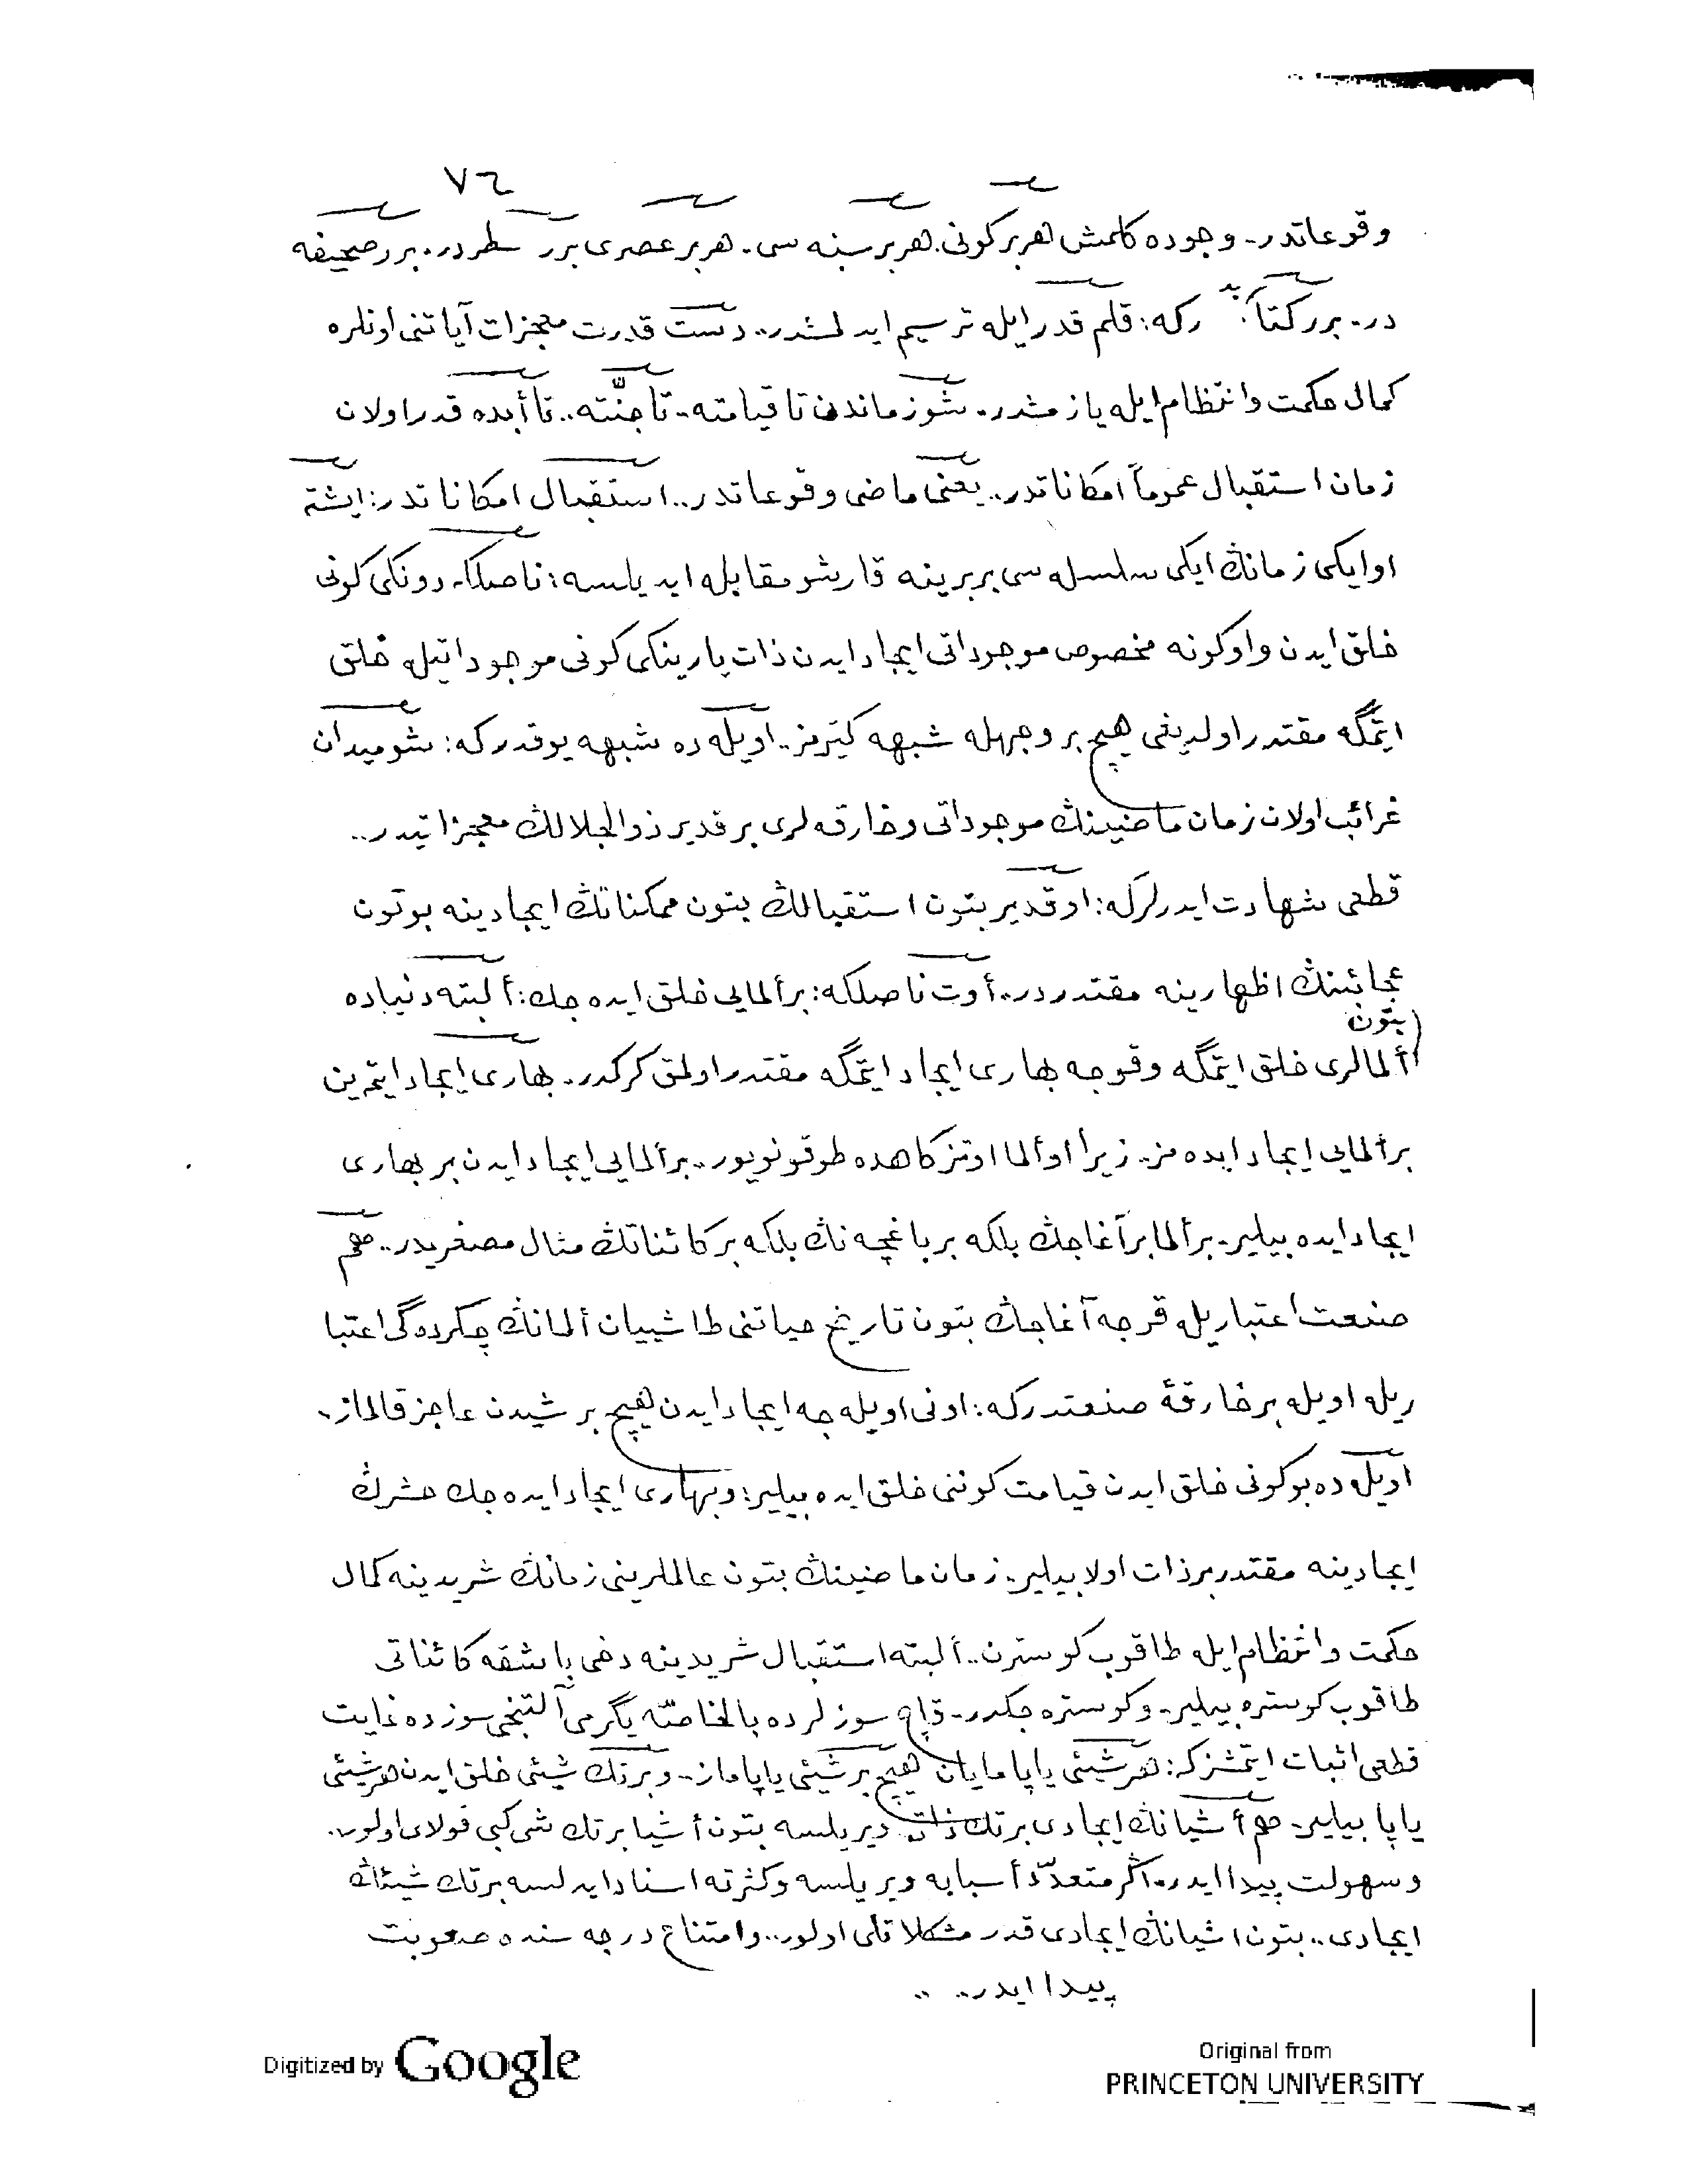 ٧٦
وقوعاتدر. وجوده كلمش هر بر كونی. هر بر سنه سی. هر بر عصری برر سطردر. برر صحیفه
در. برر كتابدركه: قلم قدر ایله ترسیم ایدلشدر.. دست قدرت معجزات آیاتنی اونلره
كمال حكمت وانتظام ایله یازمشدر. شو زماندن تا قیامته. تا جنّته.. تا أبده قدر اولان
زمان استقبال عموماً امكاناتدر.. یعنی ماضی وقوعاتدر.. استقبال امكاناتدر: ایشته
او ایكی زمانڭ ایكی سلسله سی بربرینه قارشو مقابله ایدیلسه: ناصلكه. دونكی كونی
خلق ایدن و اوكونه مخصوص موجوداتی ایجاد ایدن ذات یارینكی كونی موجوداتیله خلق
ایتمگه مقتدر اولدیغی هیچ بر وجهله شبهه كتیرمز.. اویله ده شبهه یوقدركه: شو میدان
غرائب اولان زمان ماضینڭ موجوداتی وخارقه لری بر قدیر ذوالجلالڭ معجزاتیدر..
قطعی شهادت ایدرلركه: او قدیر بتون استقبالڭ بتون ممكناتڭ ایجادینه بوتون
عجائبنڭ اظهارینه مقتدردر.. أوت ناصلكه: بر ألمایی خلق ایده جك: ألبته دنیاده
بتون
ألمالری خلق ایتمگه وقوجه بهاری ایجاد ایتمگه مقتدر اولمق گركدر. بهاری ایجاد ایتمه ین
بر ألمایی ایجاد ایده مز. زیرا او ألما او تزكاهده طوقونویور.. بر ألمایی ایجاد ایدن بر بهاری
ایجاد ایده بیلیر. بر ألما بر آغاجڭ بلكه بر باغچه نڭ بلكه بر كائناتڭ مثال مصغریدر.. هم
صنعت اعتباریله قوجه آغاجڭ بتون تاریخ حیاتنی طاشییان ألمانڭ چكردگی اعتبا
ریله اویله بر خارقۀ صنعتدركه: اونی اویله جه ایجاد ایدن هیچ بر شیدن عاجز قالماز.
اویله ده بوكونی خلق ایدن قیامت كوننی خلق ایده بیلیر: وبهاری ایجاد ایده جك حشرڭ
ایجادینه مقتدر بر ذات اولا بیلیر. زمان ماضینڭ بتون عالملرینی زمانڭ شریدینه كمال
حكمت وانتظام ایله طاقوب كوسترن.. ألبته استقبال شریدینه دخی باشقه كائناتی
طاقوب كوستره بیلیر. وكوستره جكدر. قاچ سوزلرده بالخاصّه یگرمی آلتنجی سوزده غایت
قطعی اثبات ایتمشزكه: هر شیئی یاپامایان هیچ بر شیئی یاپاماز. وبر تك شیئی خلق ایدن هر شیئی
یاپا بیلیر. هم أشیانڭ ایجادی بر تك ذاته ویریلسه بتون أشیا بر تك شی كبی قولای اولور.
وسهولت پیدا ایدر. اگر متعدّد أسبابه ویریلسه وكثرته اسناد ایدلسه بر تك شیئڭ
ایجادی.. بتون اشیانڭ ایجادی قدر مشكلاتلی اولور.. وامتناع درجه سنده صعوبت
پیدا ایدر.. ..
Digitized by Google
Original from
PRINCETON UNIVERSITY